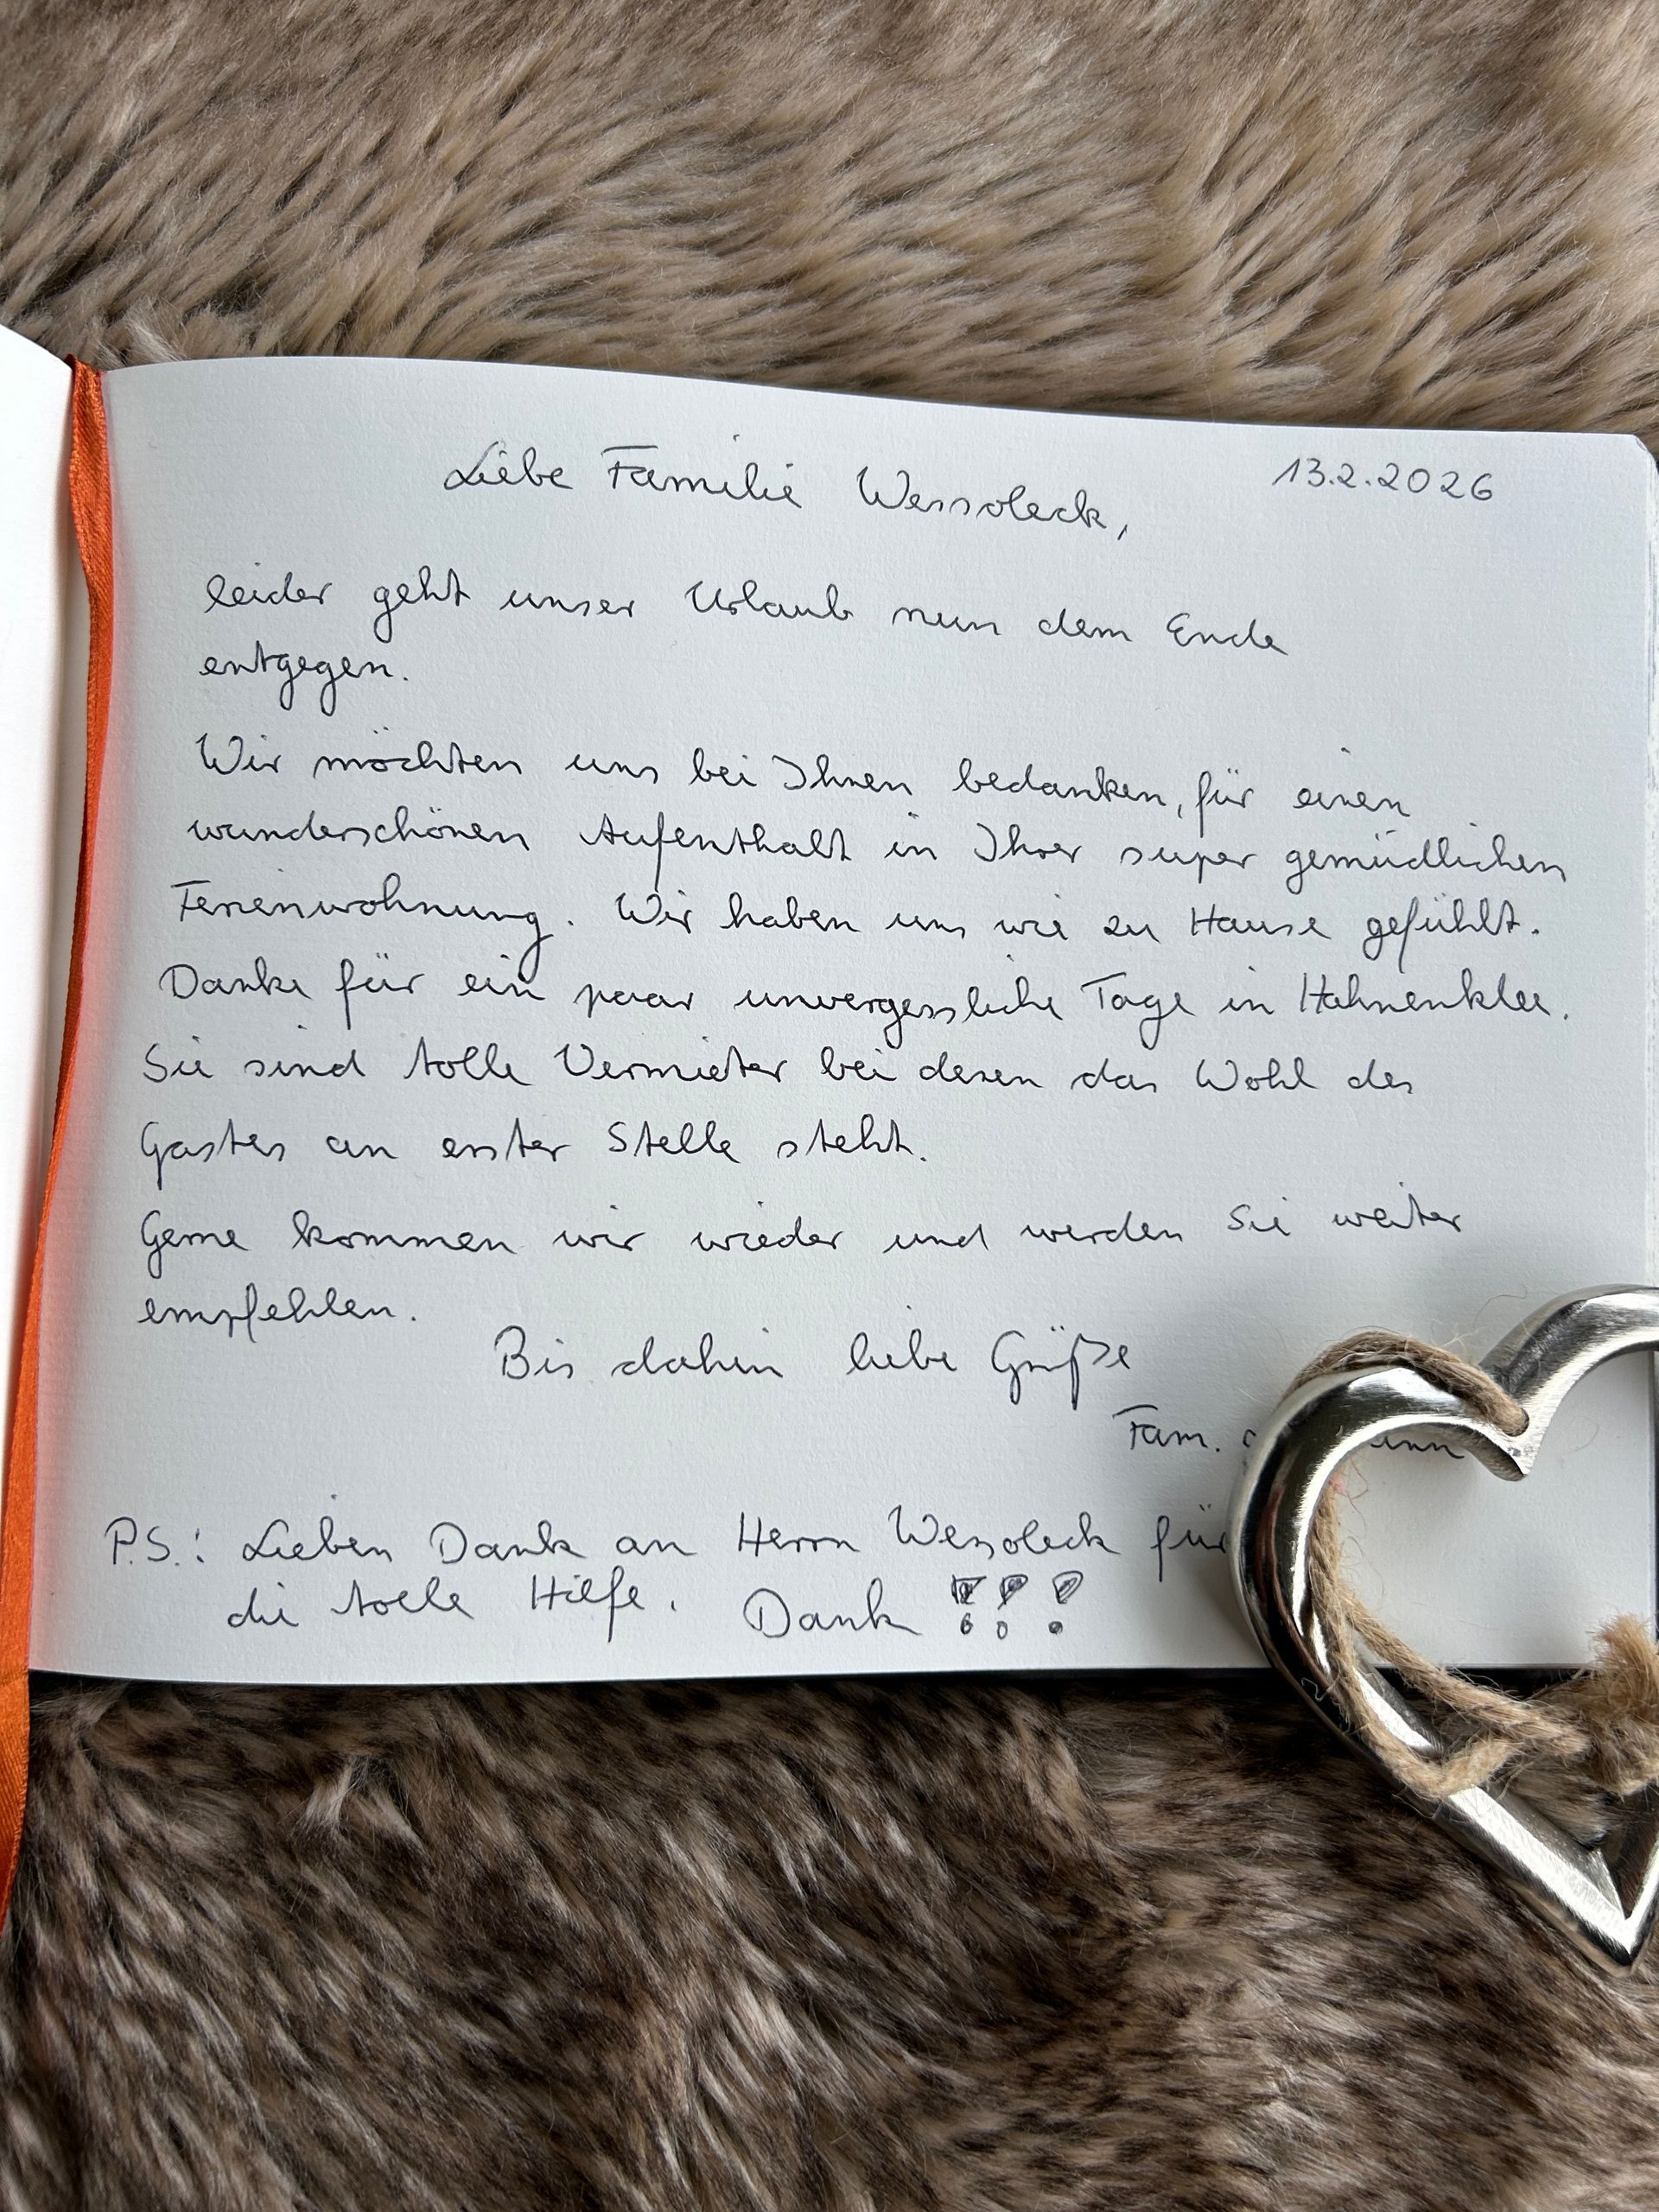 13.2.2026
Liebe Familie Wessoleck,
leider geht unser Urlaub nun dem Ende
entgegen.
Wir möchten uns bei Ihnen bedanken, für einen
wunderschönen Aufenthalt in Ihrer super gemüdlichen
Ferienwohnung. Wir haben uns wie zu Hause gefühlt.
Danke für ein paar unvergessliche Tage in Hahnenklee.
Sie sind tolle Vermieter bei denen das Wohl des
Gastes an erster Stelle steht.
Gerne kommen wir wieder und werden Sie weiter
empfehlen.
Bis dahin liebe Grüße
Fam.
P.S.: Lieben Dank an Herrn Wessoleck für
die tolle Hilfe. Dank !!!